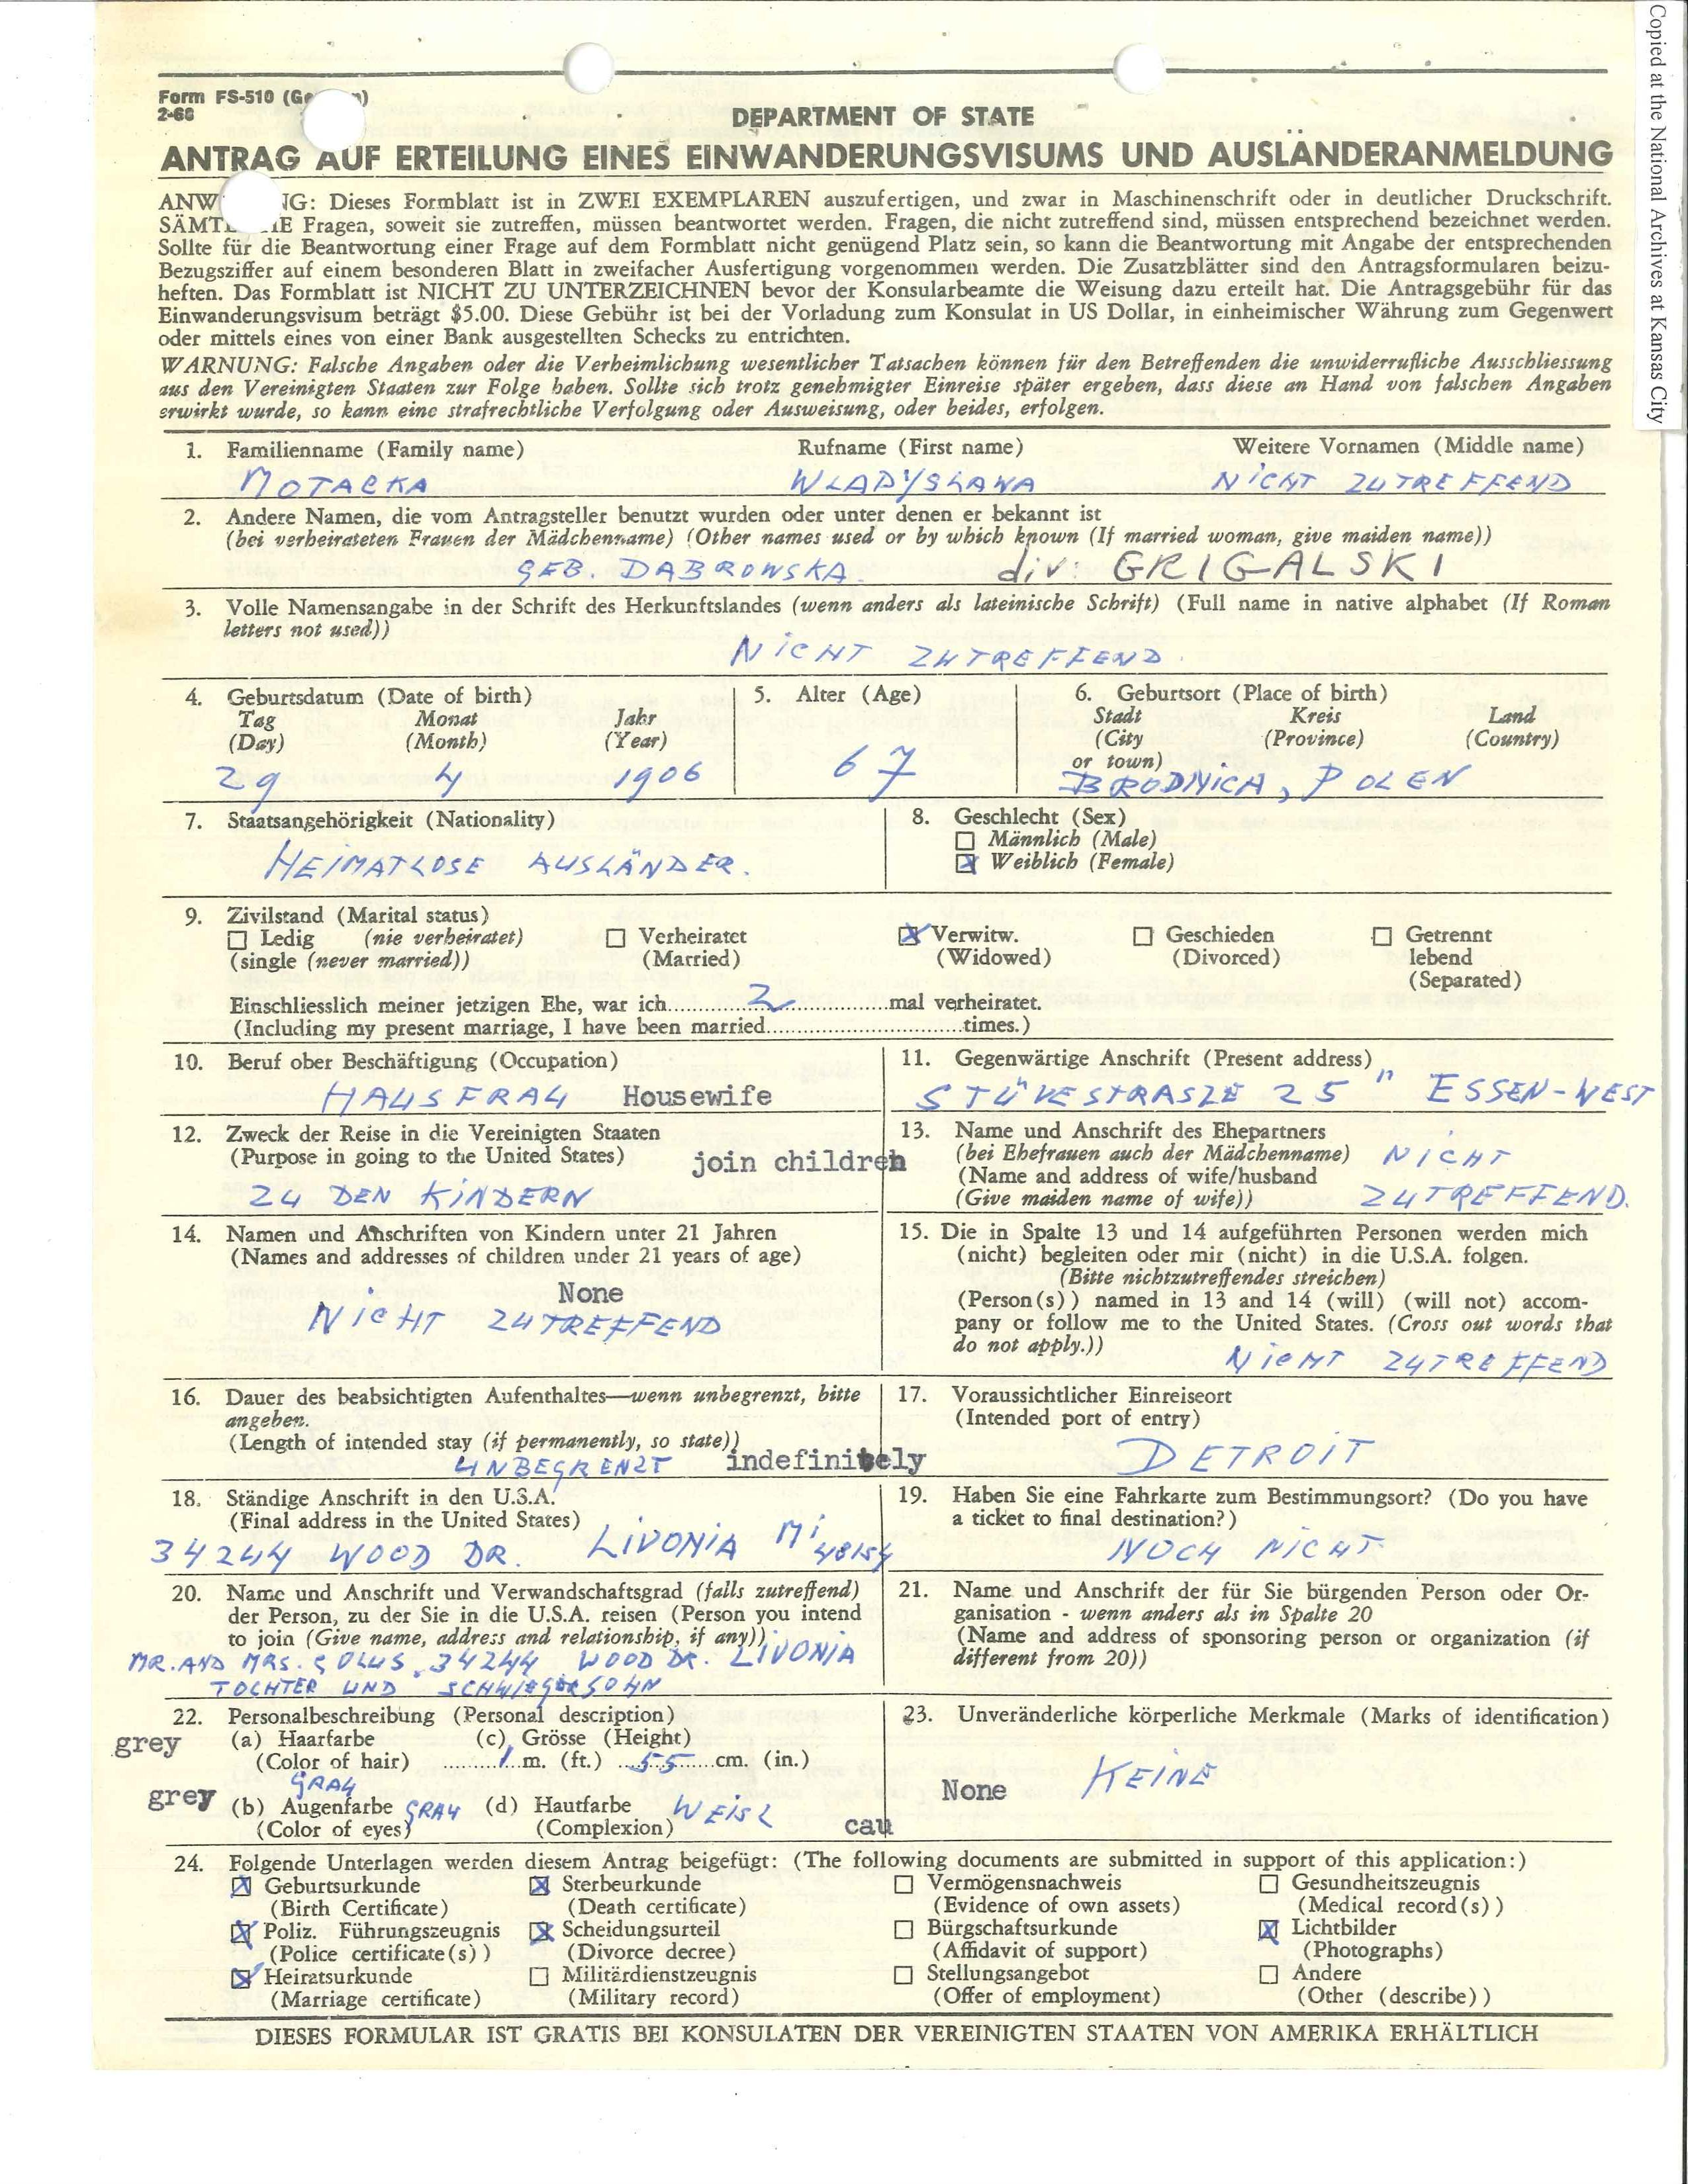 Copied at the National Archives at Kansas City
Form FS-510 (Ge n)
2-66
DEPARTMENT OF STATE
ANTRAG AUF ERTEILUNG EINES EINWANDERUNGSVISUMS UND AUSLÄNDERANMELDUNG
ANW NG: Dieses Formblatt ist in ZWEI EXEMPLAREN auszufertigen, und zwar in Maschinenschrift oder in deutlicher Druckschrift.
SÄMTL HE Fragen, soweit sie zutreffen, müssen beantwortet werden. Fragen, die nicht zutreffend sind, müssen entsprechend bezeichnet werden.
Sollte für die Beantwortung einer Frage auf dem Formblatt nicht genügend Platz sein, so kann die Beantwortung mit Angabe der entsprechenden
Bezugsziffer auf einem besonderen Blatt in zweifacher Ausfertigung vorgenommen werden. Die Zusatzblätter sind den Antragsformularen beizu-
heften. Das Formblatt ist NICHT ZU UNTERZEICHNEN bevor der Konsularbeamte die Weisung dazu erteilt hat. Die Antragsgebühr für das
Einwanderungsvisum beträgt $5.00. Diese Gebühr ist bei der Vorladung zum Konsulat in US Dollar, in einheimischer Währung zum Gegenwert
oder mittels eines von einer Bank ausgestellten Schecks zu entrichten.
WARNUNG: Falsche Angaben oder die Verheimlichung wesentlicher Tatsachen können für den Betreffenden die unwiderrufliche Ausschliessung
aus den Vereinigten Staaten zur Folge haben. Sollte sich trotz genehmigter Einreise später ergeben, dass diese an Hand von falschen Angaben
erwirkt wurde, so kann eine strafrechtliche Verfolgung oder Ausweisung, oder beides, erfolgen.
1. Familienname (Family name) Rufname (First name) Weitere Vornamen (Middle name)
MOTACKA WLADYSLAWA NICHT ZUTREFFEND
2. Andere Namen, die vom Antragsteller benutzt wurden oder unter denen er bekannt ist
(bei verheirateten Frauen der Mädchenname) (Other names used or by which known (If married woman, give maiden name))
GEB. DABROWSKA. div: GRIGALSKI
3. Volle Namensangabe in der Schrift des Herkunftslandes (wenn anders als lateinische Schrift) (Full name in native alphabet (If Roman
letters not used))
NICHT ZUTREFFEND.
4. Geburtsdatum (Date of birth) 5. Alter (Age) 6. Geburtsort (Place of birth)
Tag Monat Jahr Stadt Kreis Land
(Day) (Month) (Year) (City (Province) (Country)
or town)
29 4 1906 67 BRODNICA, POLEN
7. Staatsangehörigkeit (Nationality) 8. Geschlecht (Sex)
Männlich (Male)
HEIMATLOSE AUSLÄNDER. Weiblich (Female)
9. Zivilstand (Marital status)
Ledig (nie verheiratet) Verheiratet Verwitw. Geschieden Getrennt
(single (never married)) (Married) (Widowed) (Divorced) lebend
(Separated)
Einschliesslich meiner jetzigen Ehe, war ich 2 mal verheiratet.
(Including my present marriage, I have been married times.)
10. Beruf ober Beschäftigung (Occupation) 11. Gegenwärtige Anschrift (Present address)
HAUSFRAU Housewife STÜVESTRASZE 25" ESSEN-WEST
12. Zweck der Reise in die Vereinigten Staaten
(Purpose in going to the United States) join children
ZU DEN KINDERN
13. Name und Anschrift des Ehepartners
(bei Ehefrauen auch der Mädchenname) NICHT
(Name and address of wife/husband
(Give maiden name of wife)) ZUTREFFEND.
14. Namen und Anschriften von Kindern unter 21 Jahren
(Names and addresses of children under 21 years of age)
None
NICHT ZUTREFFEND
15. Die in Spalte 13 und 14 aufgeführten Personen werden mich
(nicht) begleiten oder mir (nicht) in die U.S.A. folgen.
(Bitte nichtzutreffendes streichen)
(Person(s)) named in 13 and 14 (will) (will not) accom-
pany or follow me to the United States. (Cross out words that
do not apply.))
NICHT ZUTREFFEND
16. Dauer des beabsichtigten Aufenthaltes—wenn unbegrenzt, bitte
angeben.
(Length of intended stay (if permanently, so state))
UNBEGRENZT indefinitely
17. Voraussichtlicher Einreiseort
(Intended port of entry)
DETROIT
18. Ständige Anschrift in den U.S.A.
(Final address in the United States)
34244 WOOD DR. LIVONIA Mi 48154
19. Haben Sie eine Fahrkarte zum Bestimmungsort? (Do you have
a ticket to final destination?)
NOCH NICHT
20. Name und Anschrift und Verwandschaftsgrad (falls zutreffend)
der Person, zu der Sie in die U.S.A. reisen (Person you intend
to join (Give name, address and relationship, if any))
MR. AND MRS. GOLUS, 34244 WOOD DR. LIVONIA
TOCHTER UND SCHWIEGERSOHN
21. Name und Anschrift der für Sie bürgenden Person oder Or-
ganisation - wenn anders als in Spalte 20
(Name and address of sponsoring person or organization (if
different from 20))
22. Personalbeschreibung (Personal description)
grey (a) Haarfarbe (c) Grösse (Height)
(Color of hair) 1 m. (ft.) 55 cm. (in.)
GRAU
grey (b) Augenfarbe GRAU (d) Hautfarbe WEISZ
(Color of eyes) (Complexion) cau
23. Unveränderliche körperliche Merkmale (Marks of identification)
None KEINE
24. Folgende Unterlagen werden diesem Antrag beigefügt: (The following documents are submitted in support of this application:)
Geburtsurkunde Sterbeurkunde Vermögensnachweis Gesundheitszeugnis
(Birth Certificate) (Death certificate) (Evidence of own assets) (Medical record(s))
Poliz. Führungszeugnis Scheidungsurteil Bürgschaftsurkunde Lichtbilder
(Police certificate(s)) (Divorce decree) (Affidavit of support) (Photographs)
Heiratsurkunde Militärdienstzeugnis Stellungsangebot Andere
(Marriage certificate) (Military record) (Offer of employment) (Other (describe))
DIESES FORMULAR IST GRATIS BEI KONSULATEN DER VEREINIGTEN STAATEN VON AMERIKA ERHÄLTLICH